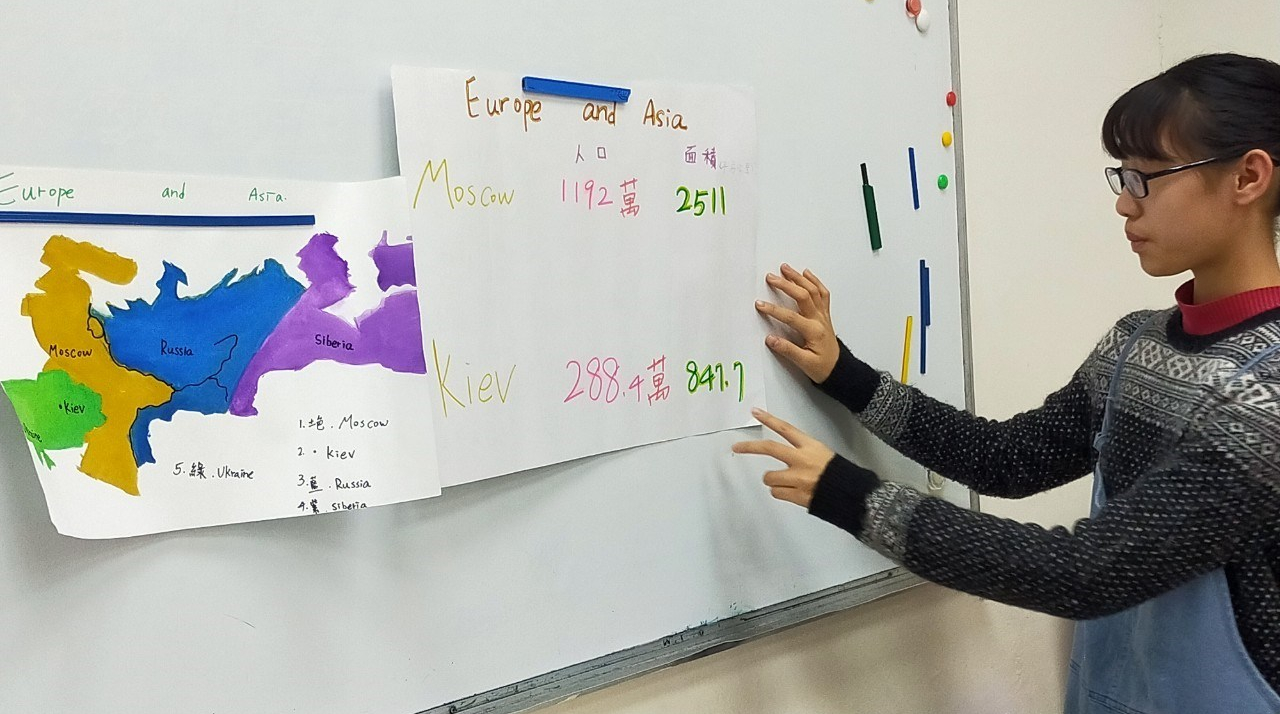 Europe and Asia.
Moscow
Russia
Siberia
Kiev
1.土色. Moscow
2. · Kiev
3.藍. Russia
4.紫. Siberia
5.綠. Ukraine
Europe and Asia
人口 面積
Moscow 1192萬 2511
Kiev 288.4萬 847.7